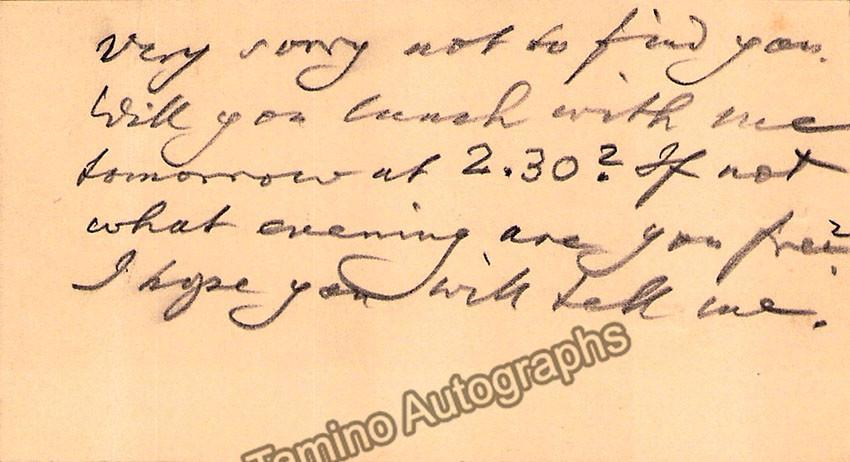 Very sorry not to find you.
Will you lunch with me
tomorrow at 2.30? If not
what evening are you free?
I hope you will tell me.
Tamino Autographs